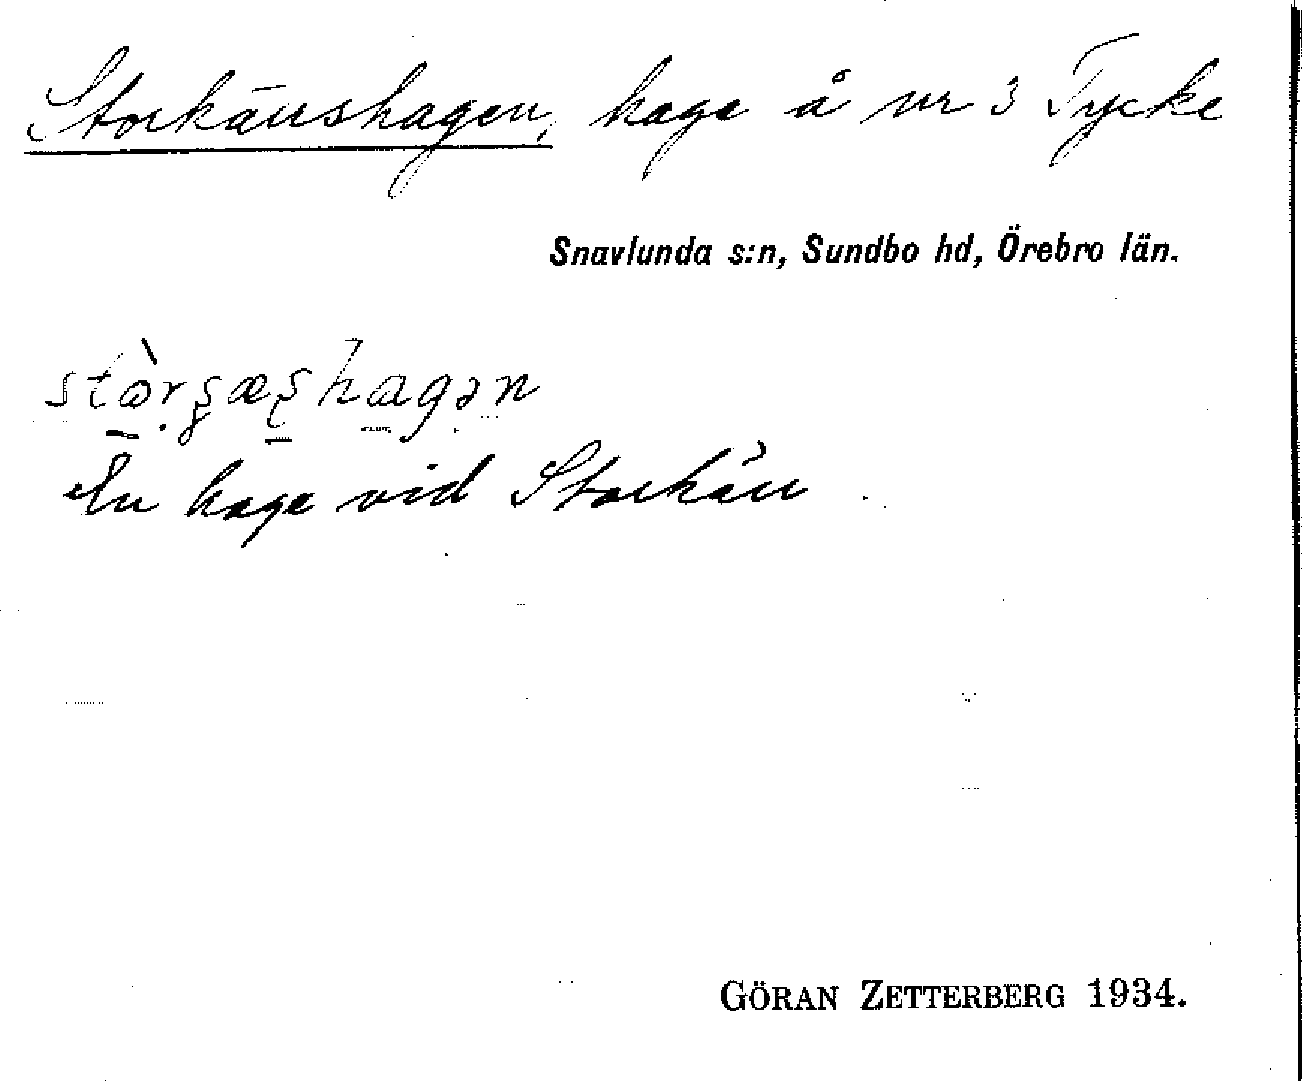 Storkänshagen, hage å nr 3 Tycke
Snavlunda s:n, Sundbo hd, Örebro län.
En hage vid Storkän.
GÖRAN ZETTERBERG 1934.